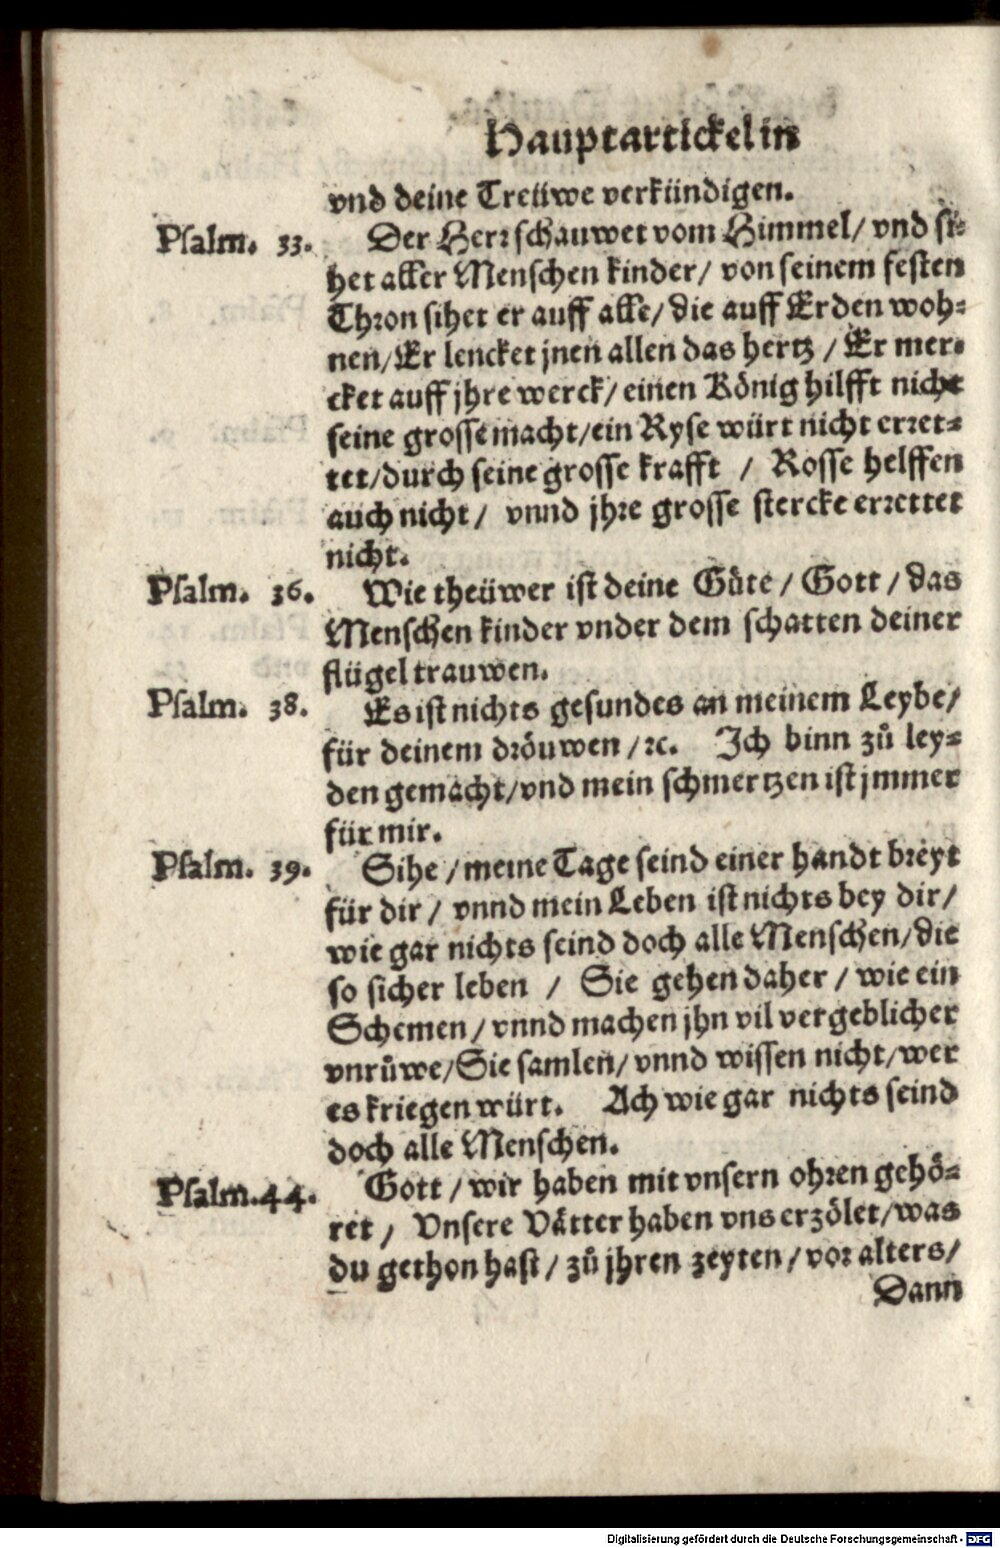 Hauptartickel in
vnd deine Treüwe verkündigen.
Psalm. 33. Der Herr schauwet vom Himmel/ vnd si-
het aller Menschen kinder/ von seinem festen
Thron sihet er auff alle/ die auff Erden woh-
nen/ Er lencket jnen allen das hertz / Er mer-
cket auff jhre werck/ einen König hilfft nicht
seine grosse macht/ ein Ryse würt nicht erret-
tet/ durch seine grosse krafft / Rosse helffen
auch nicht / vnnd jhre grosse stercke errettet
nicht.
Psalm. 36. Wie theüwer ist deine Gůte / Gott / das
Menschen kinder vnder dem schatten deiner
flügel trauwen.
Psalm. 38. Es ist nichts gesundes an meinem Leybe/
für deinem dröuwen /ꝛc. Ich binn zů ley-
den gemacht/ vnd mein schmertzen ist jmmer
für mir.
Psalm. 39. Sihe / meine Tage seind einer handt breyt
für dir / vnnd mein Leben ist nichts bey dir/
wie gar nichts seind doch alle Menschen/ die
so sicher leben / Sie gehen daher / wie ein
Schemen / vnnd machen jhn vil vergeblicher
vnrůwe/ Sie samlen/ vnnd wissen nicht/ wer
es kriegen würt. Ach wie gar nichts seind
doch alle Menschen.
Psalm. 44. Gott / wir haben mit vnsern ohren gehö-
ret / Vnsere Vätter haben vns erzölet/ was
du gethon hast / zů jhren zeyten / vor alters/
Dann
Digitalisierung gefördert durch die Deutsche Forschungsgemeinschaft - DFG